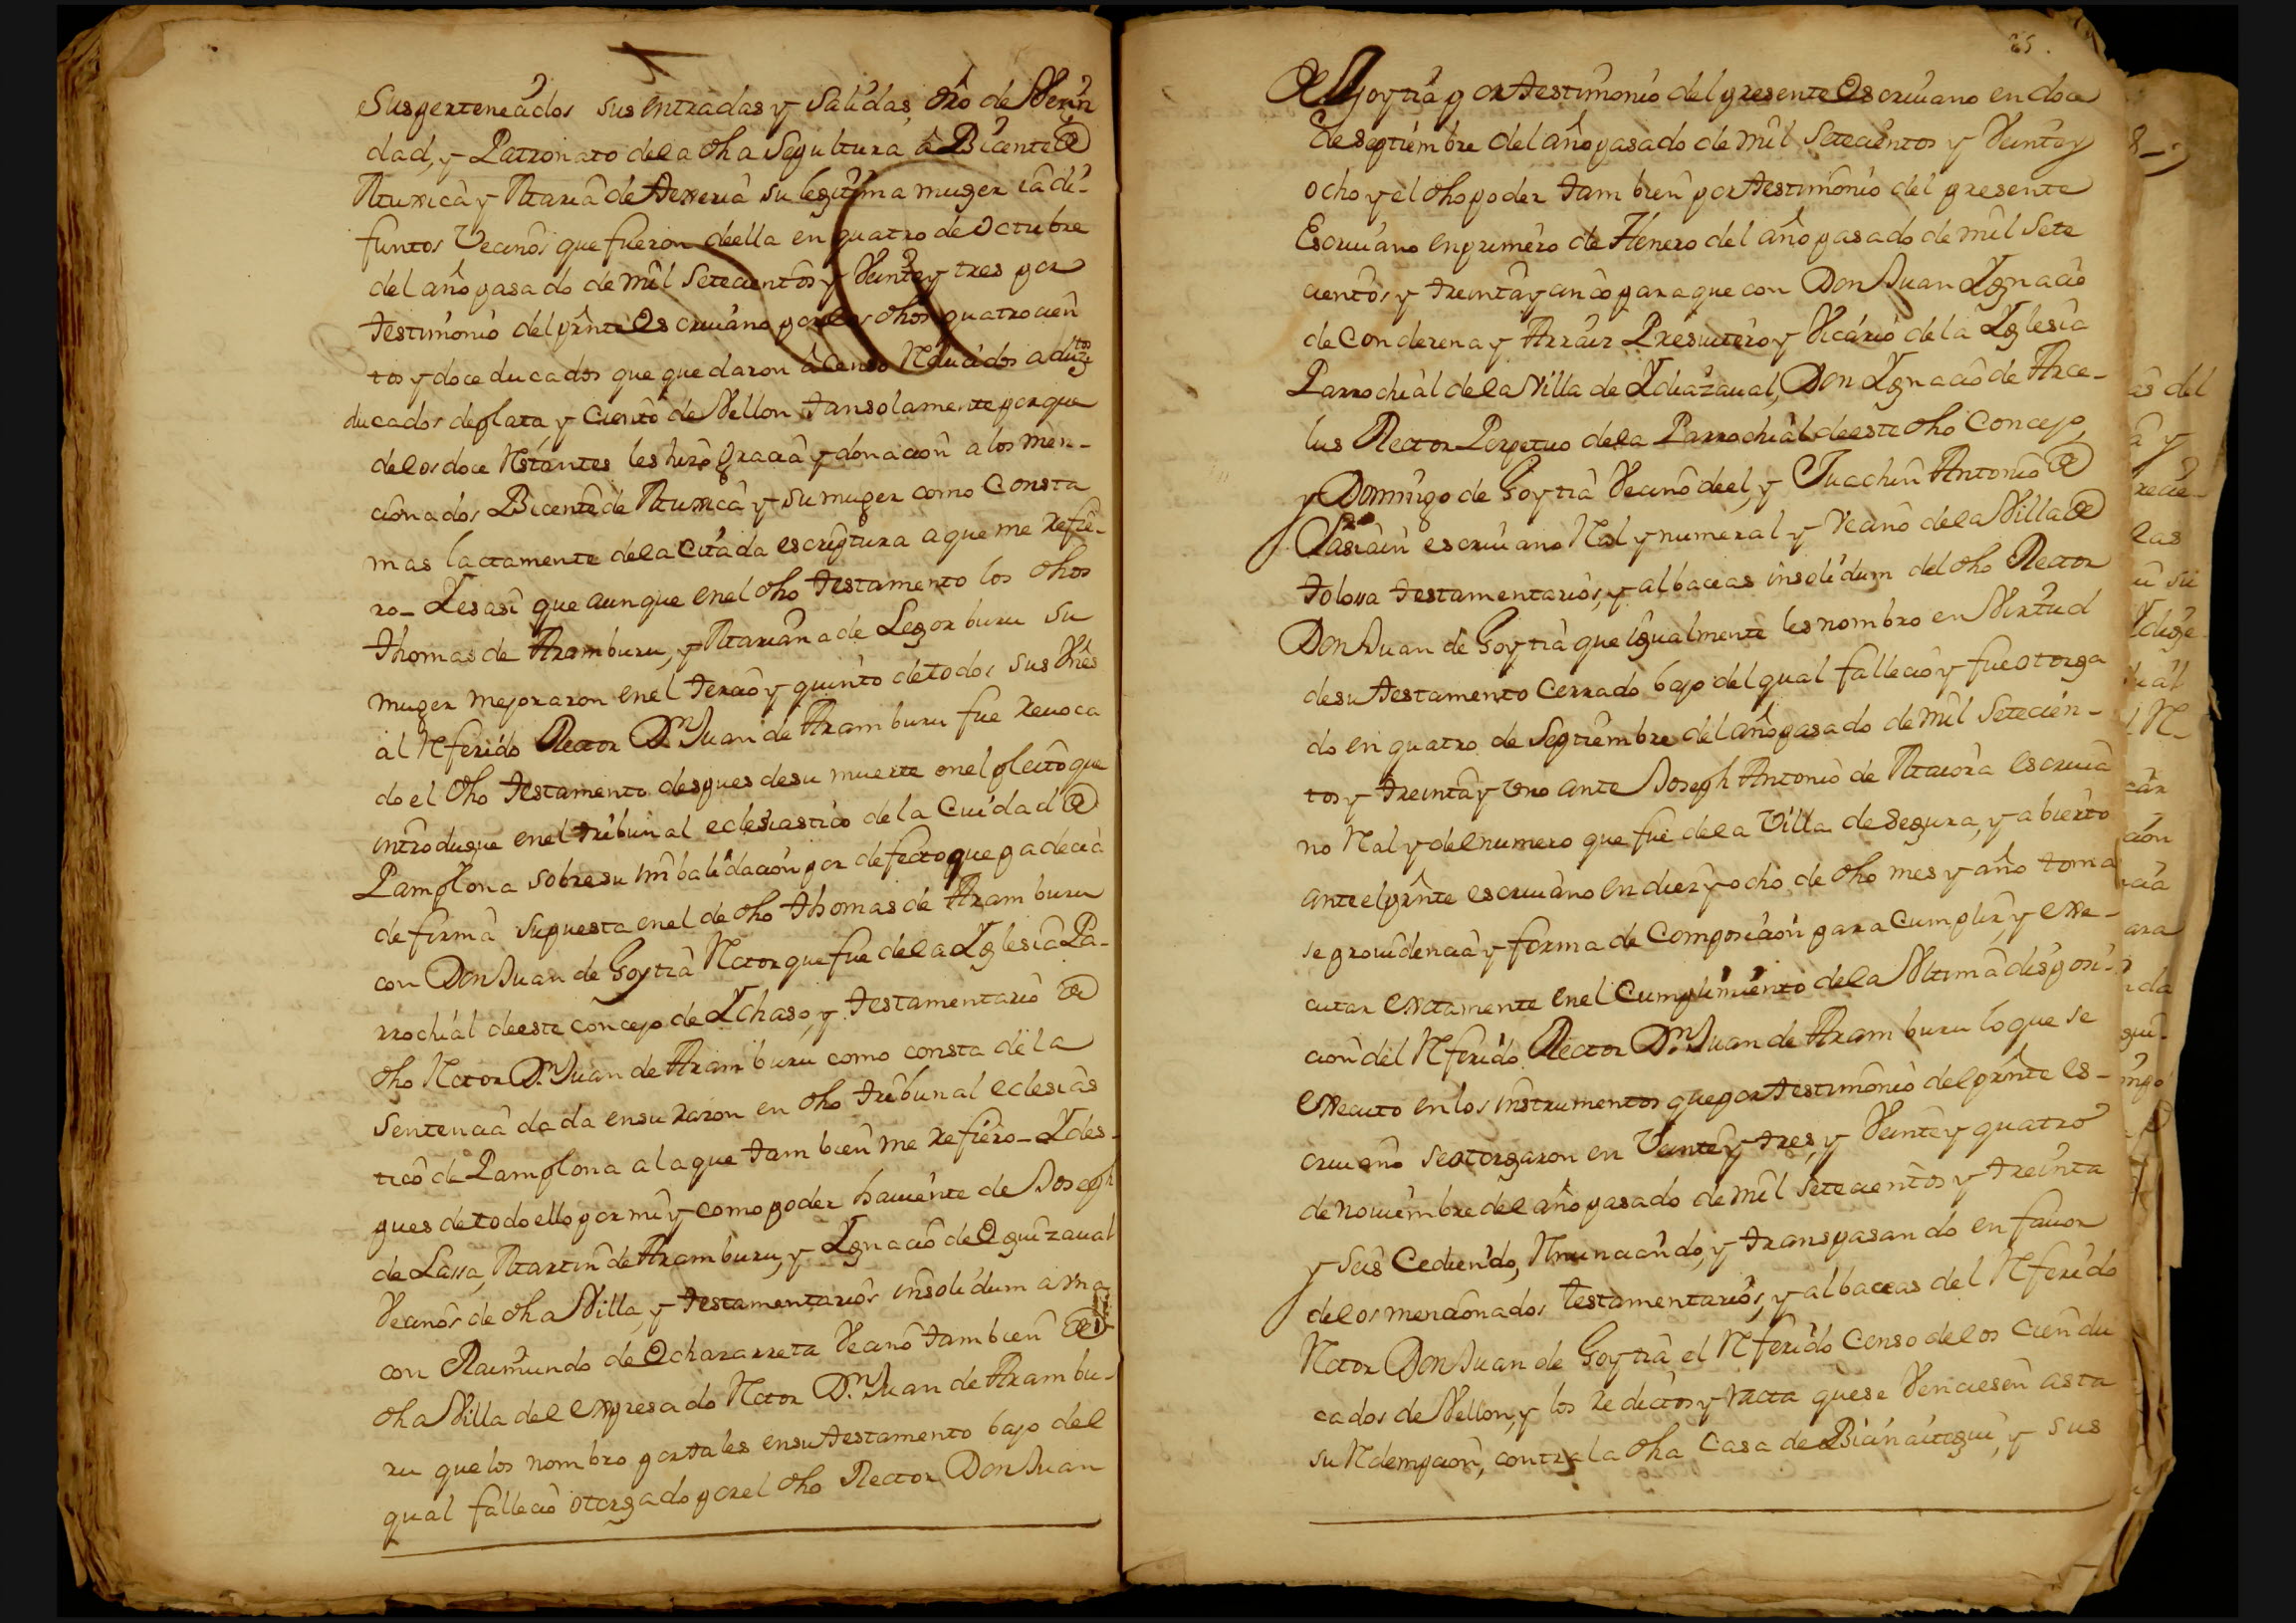 Suspertenecidos sus entradas y Salidas, dro de Vecin
dad, y Patronato dela dha Sepultura â Bicente de
Muxica y Maria de Herreria su legitima muger ia di-
funtos Vecinos que fueron deella en quatro de Octubre
del año pasado de mil Setecientos y Veinte y tres por
testimonio del prnte Escriuano por los dhos quatrocien
tos y doce ducados que quedaron â Censo Reducidos a dutos
ducados deplata y Ciento de Vellon tansolamente porque
delos doce Restantes les hizo gracia y donacion a los men-
cionados Bicente de Muxica y su muger como Consta
mas lactamente dela Citada escriptura a que me Refie-
ro_ Yes asi que aunque enel dho testamento los dhos
Thomas de Aramburu, y Mariana de Legorburu su
muger mejoraron enel tercio y quinto detodos sus Vnes
al Referido Rector Dn Juan de Aramburu fue Reuoca
do el dho testamento despues desu muerte enel pleito que
introduque enel tribunal eclesiastico de la Ciudad de
Pamplona sobresu imbalidacion por defecto que padecia
de firma supuesta enel de dho Thomas de Aramburu
con Don Juan de Goytia Rector que fue dela Yglesia Pa-
rrochial deeste concejo de Ychaso, y testamentario de
dho Rector Dn Juan de Aramburu como consta dela
Sentencia dada ensu Razon en dho tribunal eclesias
tico de Pamplona ala que tambien me refiero_ Ydes-
pues detodo ello por mi y como poder hauiente de Joseph
de Lassa, Martin de Aramburu, y Ygnacio de Eguizaual
Vecinos de dha Villa, y testamentarios insolidum a vna
con Raimundo de Echazarreta Vecino tambien de
dha Villa del expresado Rector Dn Juan de Arambu-
ru que los nombro por tales ensu testamento bajo del
qual fallecio otorgado por el dho Rector Don Juan
25.
de Goytia por testimonio del presente Escriuano en doce
de Septiembre del año pasado de mil Setecientos y Veinte y
ocho y el dho poder tambien por testimonio del presente
Escriuano en primero de Henero del año pasado de mil Sete
cientos y treinta y cinco para que con Don Juan Ygnacio
de Conderena y Arraiz Presuitero y Vicario de la Yglesia
Parrochial de la Villa de Ydiazaual, Don Ygnacio de Arce-
lus Rector Perpetuo dela Parrochial deeste dho Concejo,
y Domingo de Goytia Vecino deel, y Juachin Antonio de
Sasiain escriuano Real y numeral y Vecino dela Villa de
Tolosa testamentarios, y albaceas insolidum del dho Rector
Don Juan de Goytia que igualmente les nombro en Virtud
desu testamento Cerrado bajo del qual fallecio y fue otorga
do en quatro de Septiembre del año pasado de mil Setecien-
tos y treinta y vno ante Joseph Antonio de Maiora escriua
no Real y del numero que fue dela Villa de Segura, y abierto
ante el prnte escriuano en diez y ocho de dho mes y año toma
se prouidencia y forma de Composicion para Cumplir y exe-
cutar exctamente enel Cumplimiento dela Vltima disposi-
cion del Referido Rector Dn Juan de Aramburu lo que se
executo en los instrumentos que por testimonio del prnte es-
criuano seotorgaron en Veinte y tres, y Veinte y quatro
de nouiembre del año pasado de mil Setecientos y treinta
y Seis Cediendo, Renunciando, y transpasando en fauor
delos mencionados testamentarios, y albaceas del Referido
Rector Don Juan de Goytia el Referido Censo delos Cien du
cados de Vellon, y los redictos y recta quese Venciesen asta
su Redempcion, contra la dha Casa de Bicinaitegui, y sus